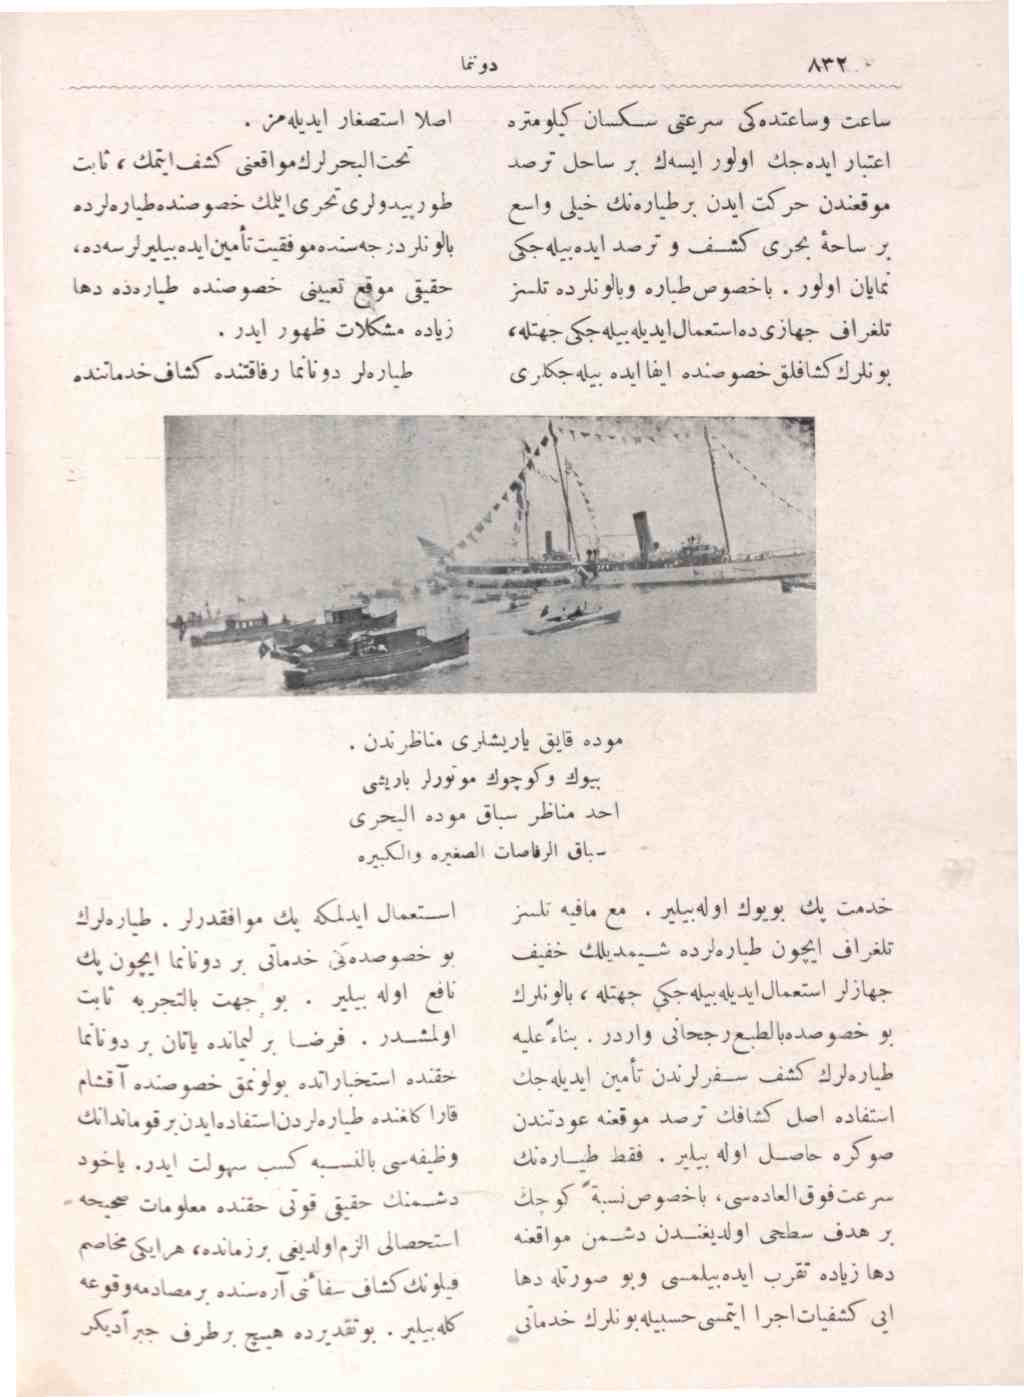 ٨٣٢
دوننما
ساعت وساعتده‌كی سرعتی سكسان كیلومتره
اعتبار ایده‌جك اولور ایسه‌ك بر ساحل ترصد
موقعندن حركت ایدن برطیاره‌نك خیلی واسع
بر ساحۀ بحری كشف و ترصد ایده‌بیله‌جكی
نمایان اولور . باخصوص طیاره وبالونلرده تلسز
تلغراف جهازی ده‌استعمال‌ایدیله‌بیله‌جكی جهتله،
بونلرك كشافلق خصوصنده ایفا ایده بیله‌جكلری
خدمت پك بویوك اوله‌بیلیر . مع مافیه تلسز
تلغراف ایچون طیاره‌لرده شیمدیلك خفیف
جهازلر استعمال‌ایدیله‌بیله‌جكی جهتله ، بالونلرك
بو خصوصده‌بالطبع‌رجحانی واردر . بناءً علیه
طیاره‌لرك كشف سفرلرندن تأمین ایدیله‌جك
استفاده اصل كشافك ترصد موقعنه عودتندن
صوكره حاصل اوله بیلیر . فقط طیاره‌نك
سرعت‌فوق‌العاده‌سی، باخصوص نسبةً كوچك
بر هدف سطحی اولدیغندن دشمن مواقعنه
دها زیاده تقرب ایده‌بیلمسی وبو صورتله دها
ایی كشفیات‌اجرا ایتمسی حسبیله‌بونلرك خدماتی
اصلا استصغار ایدیله‌مز .
تحت‌البحرلرك‌مواقعنی كشف‌ایتمك ، ثابت
طورپیدولری تحری‌ایتمك خصوصنده‌طیاره‌لرده
بالونلر درجه‌سنده‌موفقیت‌تأمین‌ایده‌بیلیرلرسه‌ده،
حقیقی موقع تعیینی خصوصنده طیاره‌ده دها
زیاده مشكلات ظهور ایدر .
طیاره‌لر دونانما رفاقتنده كشاف‌خدماتنده
استعمال ایدلمكه پك موافقدرلر . طیاره‌لرك
بو خصوصده‌كی خدماتی بر دونانما ایچون پك
نافع اوله بیلیر . بو جهت بالتجربه ثابت
اولمشدر . فرضا بر لیمانده یاتان بر دونانما
حقنده استخباراتده بولونمق خصوصنده آقشام
قارا كلغنده طیاره‌لردن‌استفاده‌ایدن‌برقوماندانك
وظیفه‌سی بالنسبه كسب سهولت ایدر. یاخود
دشمنك حقیقی قوتی حقنده معلومات صحیحه
استحصالی الزم‌اولدیغی برزمانده، هرایكی‌مخاصم
فیلونك كشاف سفائنی آره‌سنده برمصادمه‌وقوعه
كله‌بیلیر. بوتقدیرده هیچ برطرف جبراً‌دیكر
موده قایق یاریشلری مناظرندن .
بیوك وكوچوك موتورلر یاریشی
احد مناظر سباق موده البحری
سباق الرفاصات الصغیره والكبیره